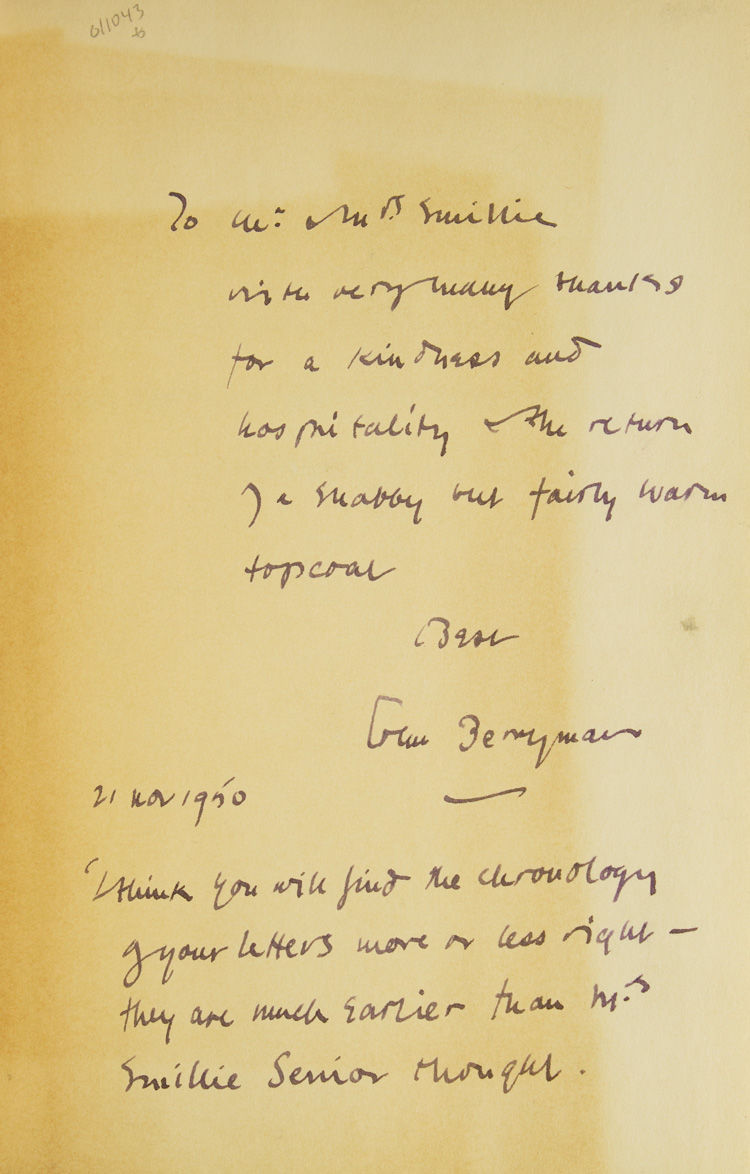 611043
To Mr. & Mrs Smillie
with very many thanks
for a kindness and
hospitality & the return
of a shabby but fairly warm
topcoat
Best
John Berryman
21 Nov 1950
I think you will find the chronology
of your letters more or less right –
they are much earlier than Mrs
Smillie Senior thought.